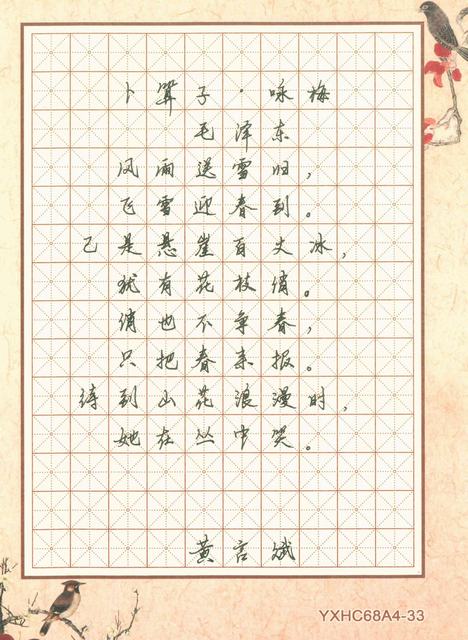 卜算子·咏梅
毛泽东
风雨送雪归，
飞雪迎春到。
已是悬崖百丈冰，
犹有花枝俏。
俏也不争春，
只把春来报。
待到山花浪漫时，
她在丛中笑。
黄言斌
YXHC68A4-33